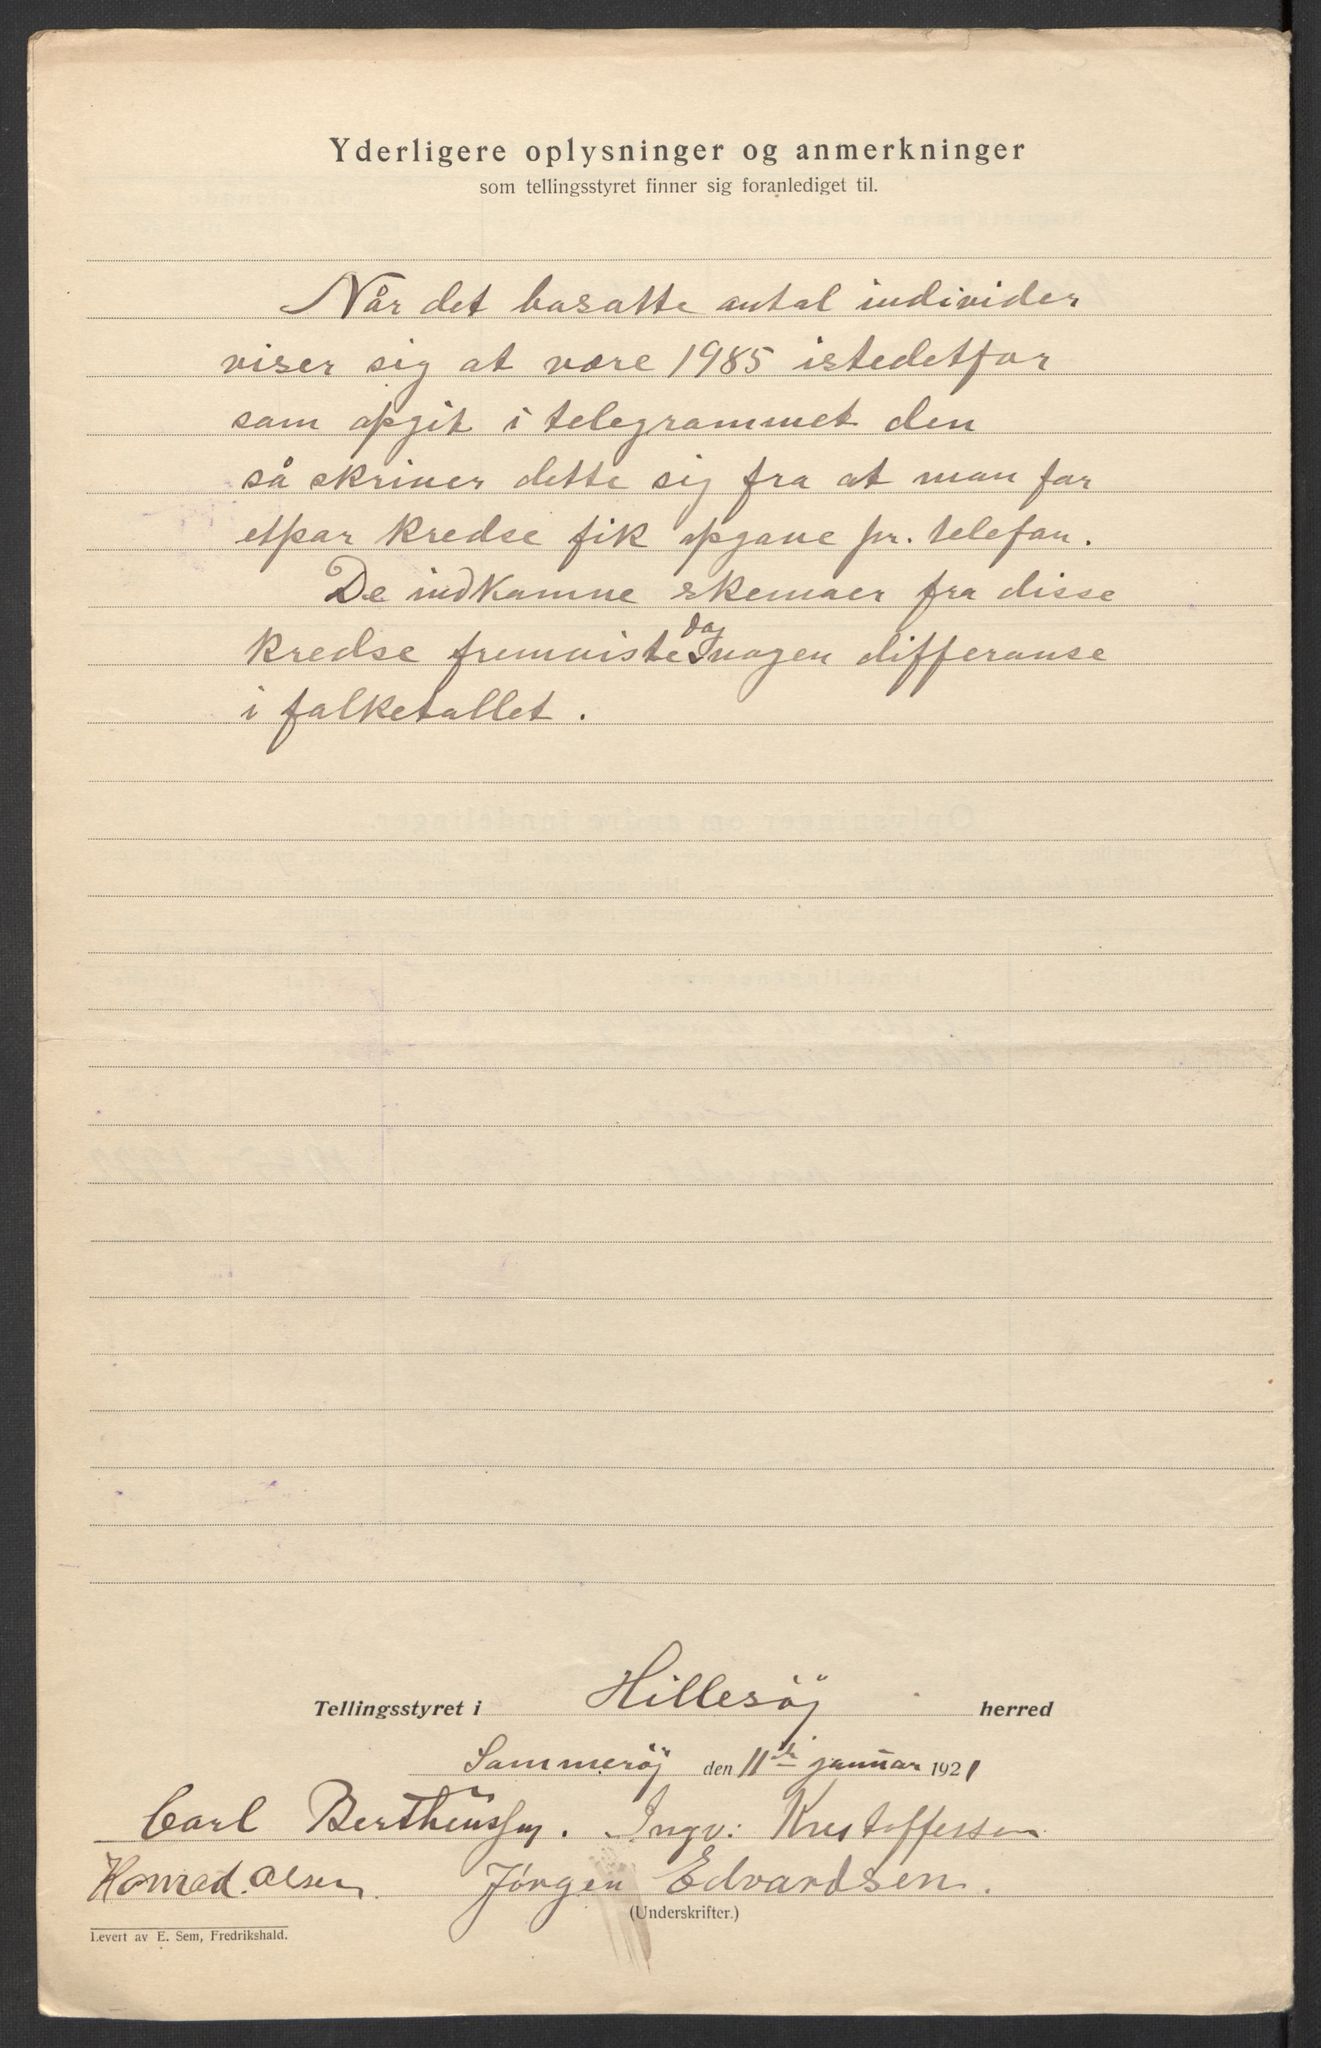 Yderligere oplysninger og anmerkninger
som tellingsstyret finner sig foranlediget til.
Når det bosatte antal individer
viser sig at være 1985 istedetfor
som opgit i telegrammet den
så skriver dette sig fra at man for
etpar kredse fik opgave pr. telefon.
De indkomne skemaer fra disse
kredse fremviste dog nogen differanse
i folketallet.
Tellingsstyret i Hillesöy herred
Sommeröy den 11te januar 1921
Carl Bertheussen. Ingv: Kristoffersen
Konrad. Olsen. Jörgen Edvardsen.
(Underskrifter.)
Levert av E. Sem, Fredrikshald.